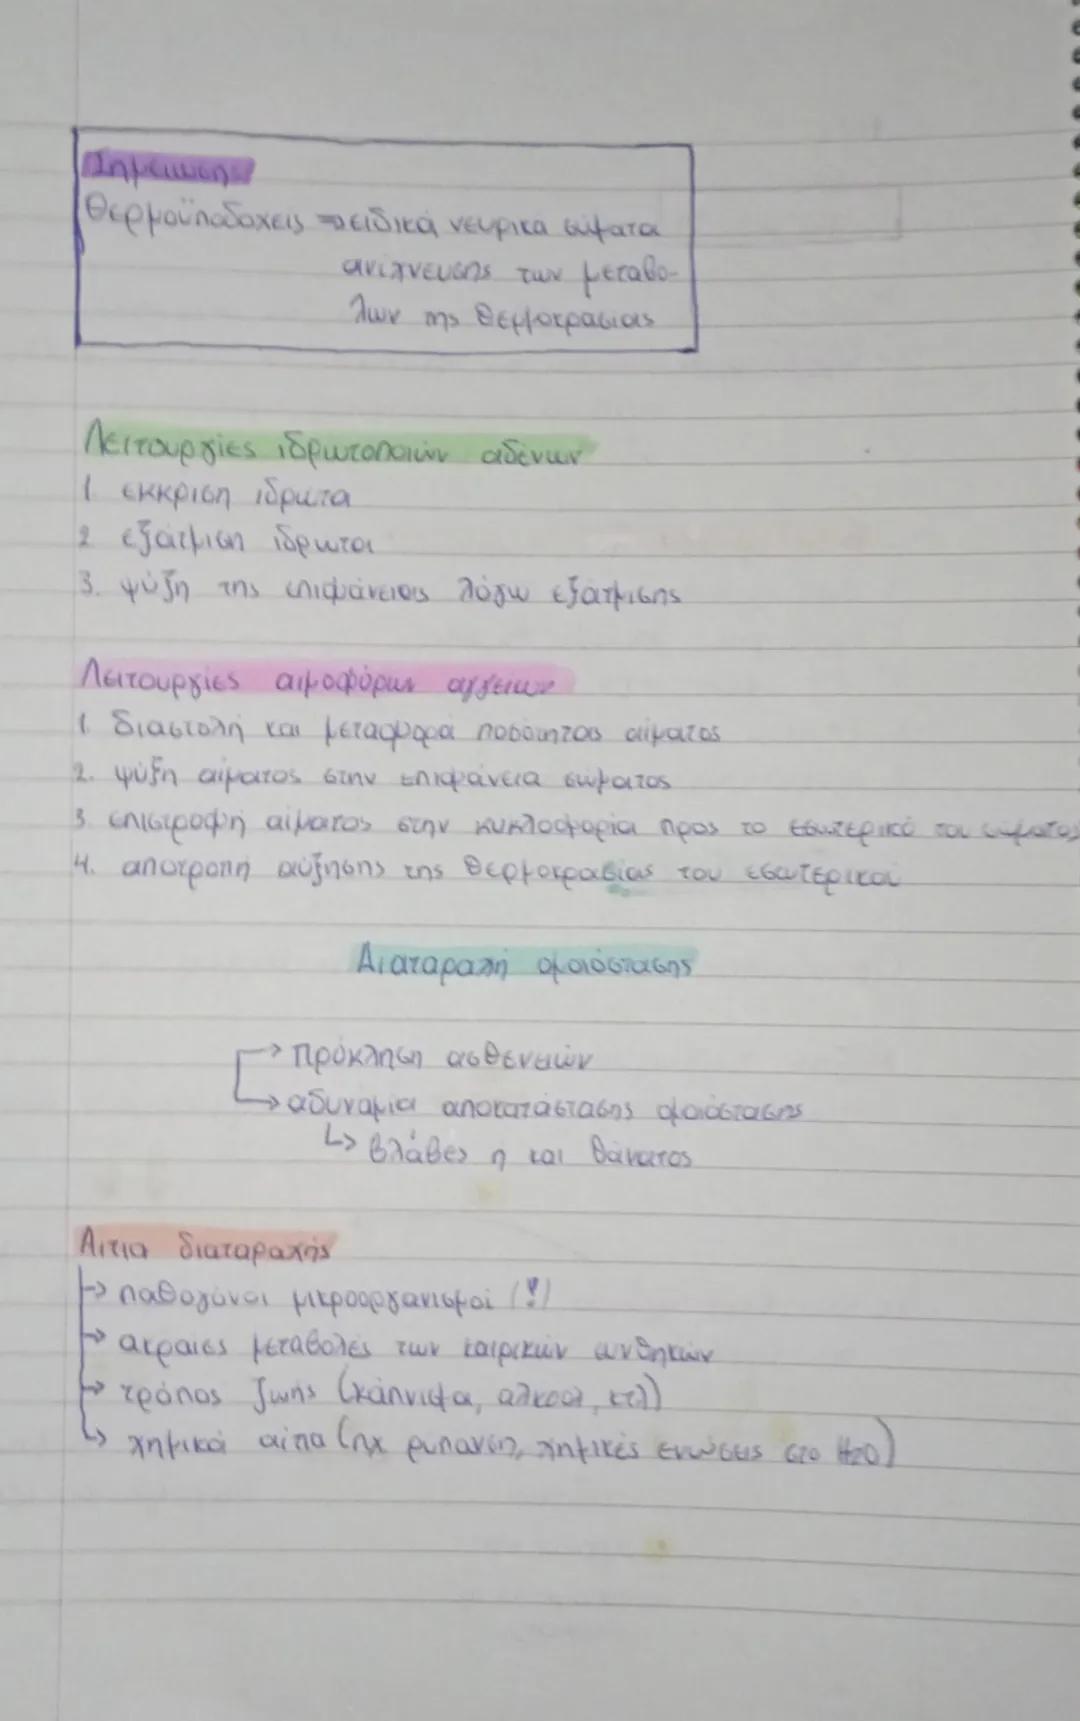 Σημείωση:
Θερμοϋποδοχείς → ειδικά νευρικά σώματα
ανίχνευσης των μεταβο-
λων της θερμοκρασίας
Λειτουργίες ιδρωτοποιών αδένων
1. έκκριση ιδρώτα
2. εξάτμιση ιδρώτα
3. ψύξη της επιφάνειας λόγω εξάτμισης
Λειτουργίες αιμοφόρων αγγείων
1. διαστολή και μεταφορά ποσότητας αίματος
2. ψύξη αίματος στην επιφάνεια σώματος
3. επιστροφή αίματος στην κυκλοφορία προς το εσωτερικό του σώματος
4. αποτροπή αύξησης της θερμοκρασίας του εσωτερικού
Διαταραχή ομοιόστασης
→ πρόκληση ασθενειών
→ αδυναμία αποκατάστασης ομοιόστασης
↳ βλάβες ή και θάνατος
Αίτια διαταραχής
→ παθογόνοι μικροοργανισμοί (!)
→ ακραίες μεταβολές των καιρικών συνθηκών
→ τρόπος ζωής (κάπνισμα, αλκοόλ, κτλ)
↳ χημικά αίτια (πχ ρύπανση, χημικές ενώσεις στο H2O)